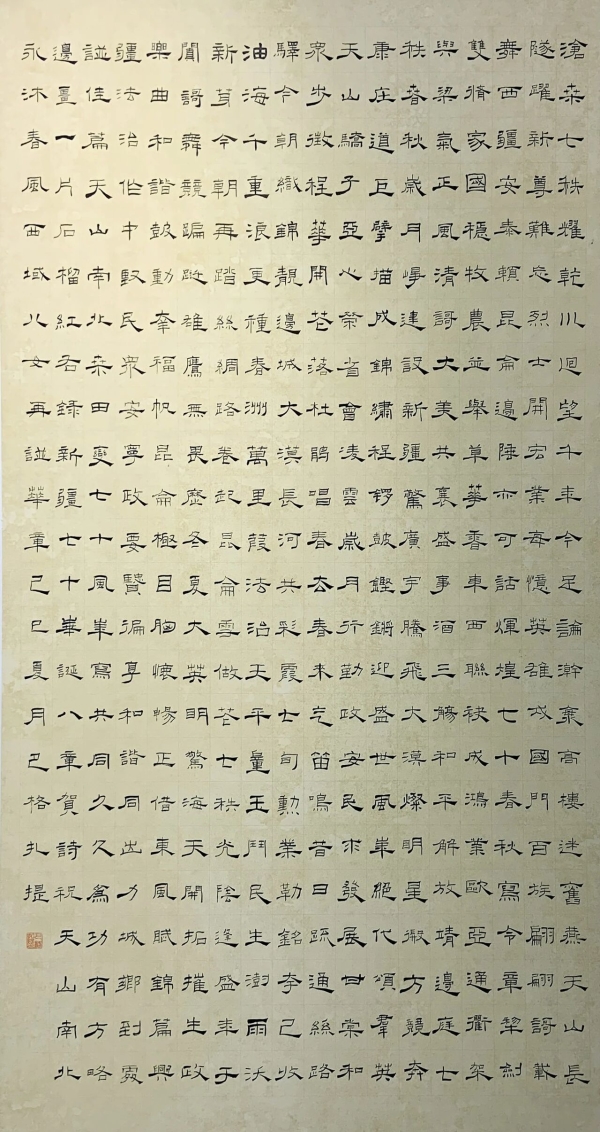 滄桒七秩耀乾川迴望千年今足論瀚高樓迷舊燕天山長
隧躍新尊難忘烈士開宏業每憶英雄戍國門百族翩翩謌載
舞西疆安泰賴昆侖邊陲亦可話煇煌七十春秋寫令章犂劍
雙脩家國穩牧農並舉草華香車西聯袂成鴻業歐亞通衢架
與梁氣正風清謌大美共襄盛事酒三觴和平解放靖邊庭七
秩春秋歲月崢建設新疆驚廣宇騰飛大漠燦明星方競奔
康庄道巨擘描成錦繡程鑼鼓鏗鏘迎盛世風華絕代頌羣英
天山驕子亞心榮省會凌雲歲月行勤政安民求發展甘棠和
眾步徵程華開芒落杜鵑唱春去春来气笛鳴昔日疏通絲路
驛今朝織錦靚邊城大漠長河共彩霞士旬勳業勒銘李己收
油海千重浪更種春洲萬里葭法治天平量玉鬥民生澍雨沃
新茸令朝再踏絲綢路卷起昆侖雲做芒七秩光陰逢盛年于
聞謌舞競蹁躚雄鷹無畏歷冬夏大英明驚海天開拓摧生政
樂曲和諧鼓動福帆昆侖極目胸懷暢正借東風賦錦篇興
疆法治作中堅民眾安寧政要賢徧享和諧同出力城鄉到處
諡佳篇天山南北桒田變七十風華寫共同久久為功有方略
邊畺一片石榴紅名錄新疆七十華誕八章賀詩祝天山南北
永沐春風西域儿女再諡華章己巳夏月巴格扎提